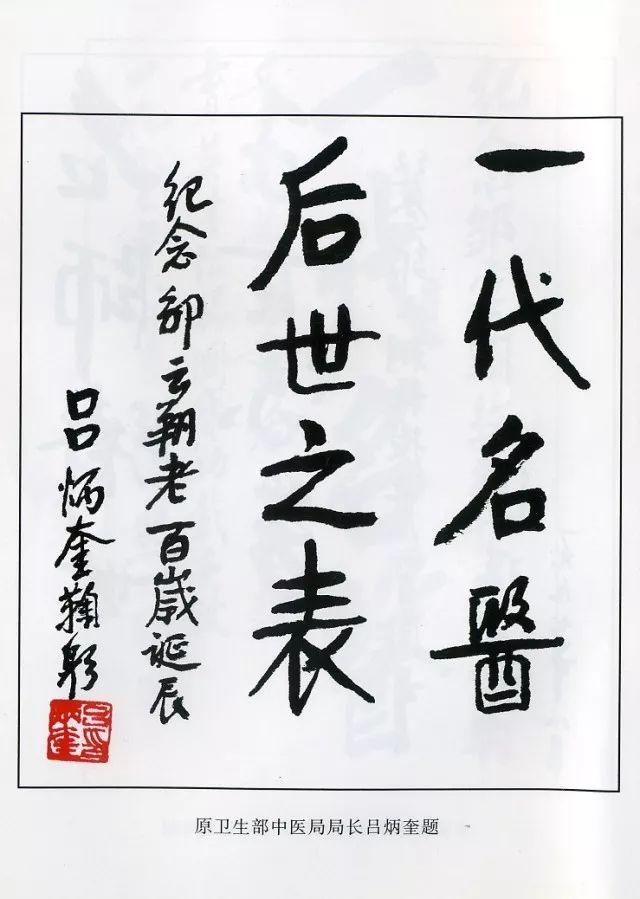 一代名醫
后世之表
纪念邹云翔老百歲诞辰
吕炳奎鞠躬
原卫生部中医局局长吕炳奎题